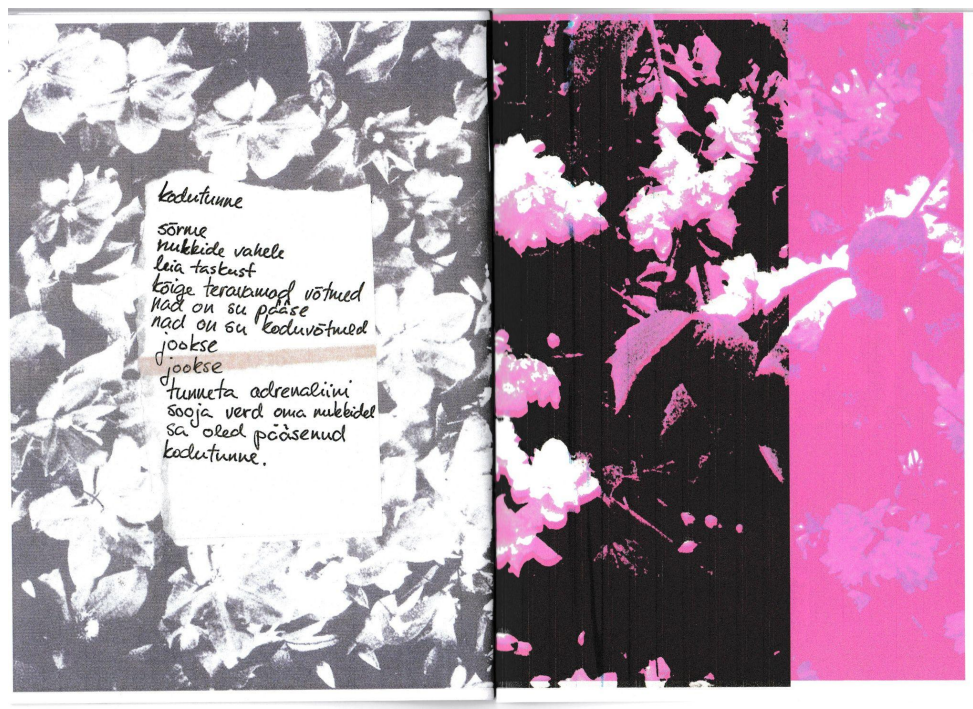 kodutunne
sõrme
nukkide vahele
leia taskust
kõige teravamad võtmed
nad on su pääse
nad on su koduvõtmed
jookse
jookse
tunneta adrenaliini
sooja verd oma nukkidel
sa oled pääsenud
kodutunne.